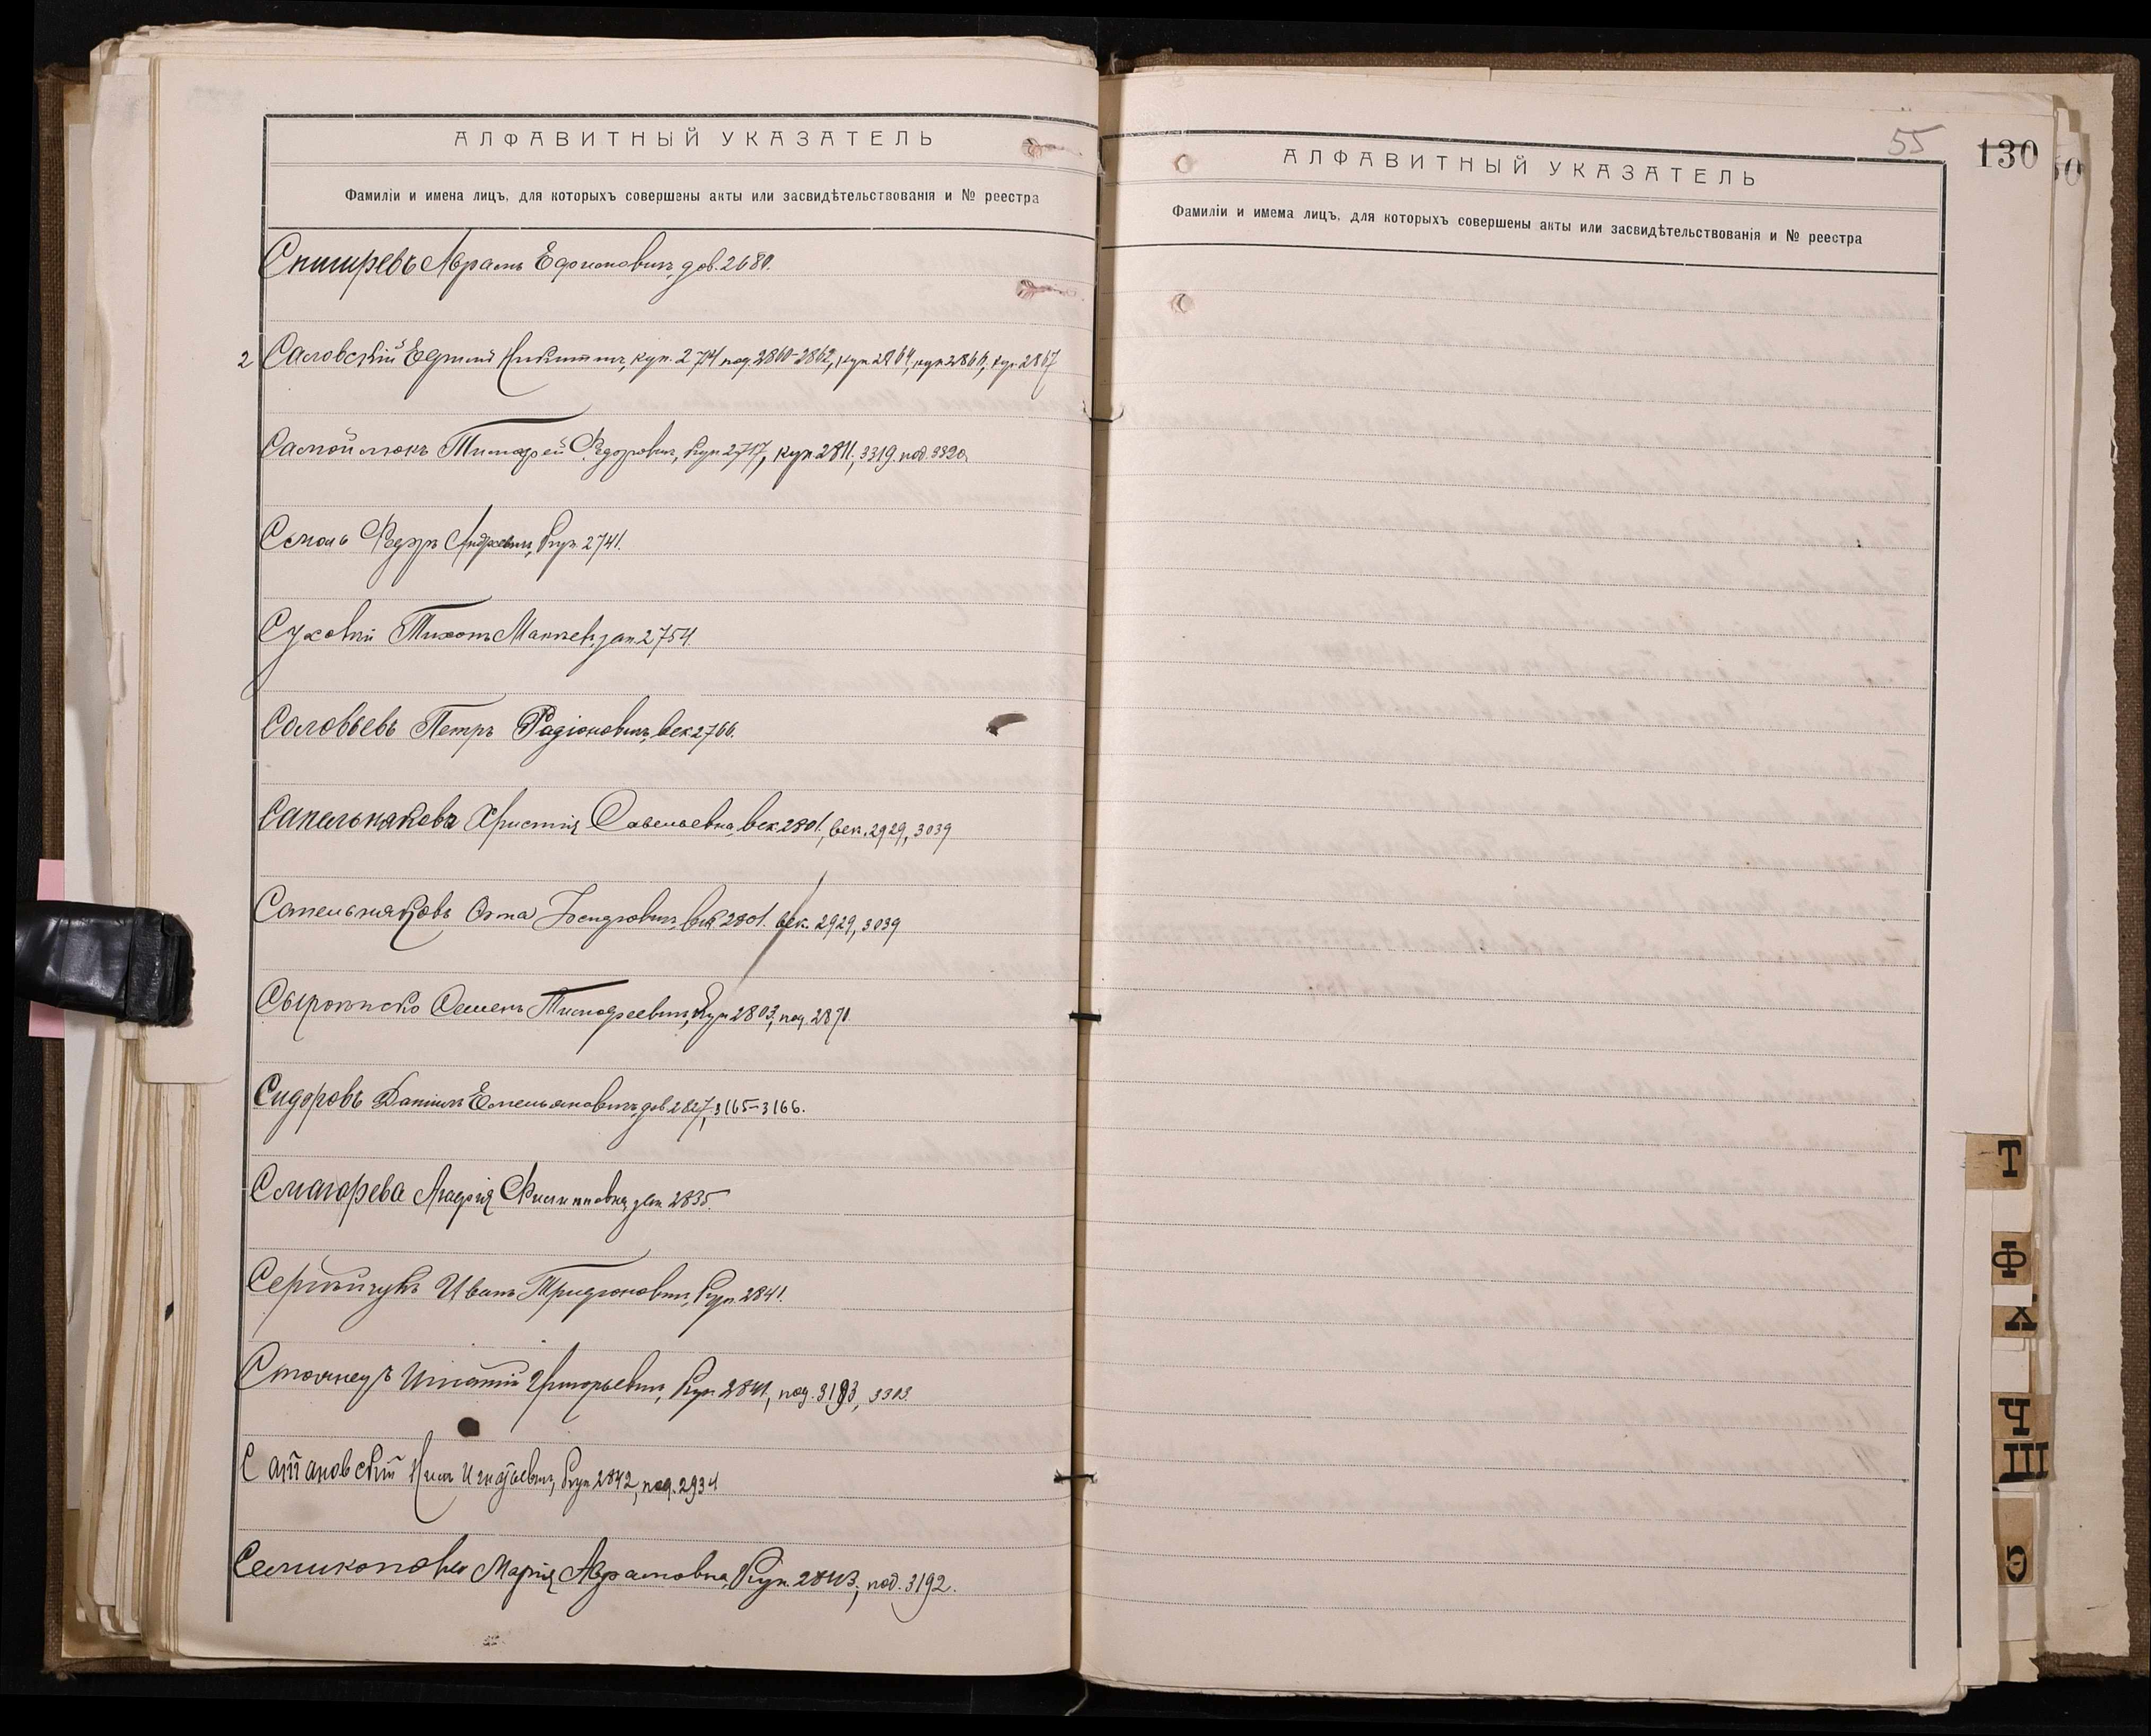 АЛФАВИТНЫЙ УКАЗАТЕЛЬ
Фамиліи и имена лицъ, для которыхъ совершены акты или засвидѣтельствованія и № реестра
Авраамъ дов. 2680.
2 Никитичъ, куп. 2860-2862, куп. 2867
Самойлюкъ Тимофей Федоровичъ, куп. 2717, куп. 2811, 3319. под. 3320.
Федоръ Андреевичъ, куп. 2741.
Суховій Тихонъ зап. 2754.
Соловьевъ Петръ Радіоновичъ, век. 2766.
Сапельнякова Христія Савельевна, век. 2801, век. 2929, 3039
Сапельняковъ век. 2801. век. 2929, 3039
Семенъ Тимофеевичъ, куп. 2803, под. 2870.
Сидоровъ Даніилъ Емельяновичъ, дов. 2827, 3165-3166.
Смагорева Агафія Филипповна, зап. 2835.
Сергійчукъ Иванъ Трифоновичъ, куп. 2841.
Игнатій Григорьевичъ, куп. 2841, под. 3193, 3303.
Игнатьевичъ, куп. 2842, под. 2934
Марія Авраамовна, куп. 2843, под. 3192.
55
130
АЛФАВИТНЫЙ УКАЗАТЕЛЬ
Фамиліи и имема лицъ, для которыхъ совершены акты или засвидѣтельствованія и № реестра
Т
Ф
Х
Ч
Ш
Э